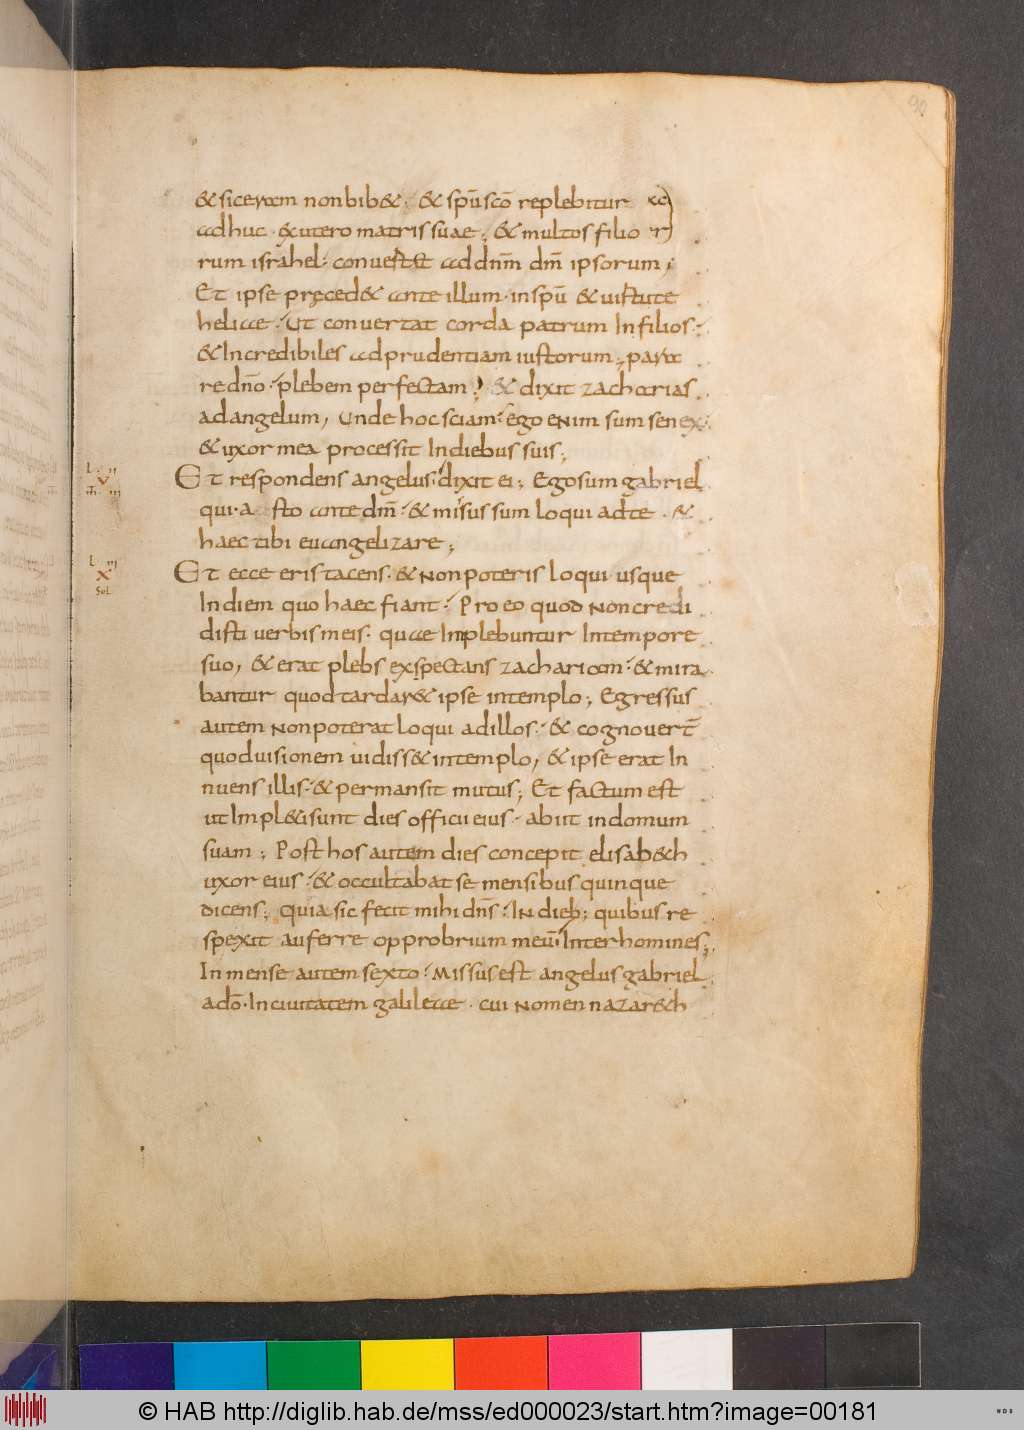 90
& siceram non bib&. & spū scō replebitur xc
adhuc. ex utero matris suae; & multos filio r
rum israhel. convertet ad dnm̄ dm̄ ipsorum;
Et ipse preced& ante illum. in spū & uirtute
heliae. Ut convertat corda patrum In filios.
& Incredibiles ad prudentiam iustorum; para
re dnō. plebem perfectam; & dixit zacharias
ad angelum, Unde hoc sciam. ego enim sum senex.
& uxor mea processit In diebus suis;
L. iii
V
Et respondens angelus. dixit ei; Ego sum gabriel
qui a sto ante dm̄. & misus sum loqui ad te. &
haec tibi euangelizare;
L. iii
X
Sol
Et ecce eris tacens. & Non poteris loqui usque
In diem quo haec fiant. Pro eo quod Non credi
disti verbis meis. quae Implebuntur In tempore
suo, & erat plebs exspectans zachariam. & mira
bantur quod tardar& ipse in templo; Egressus
autem Non poterat loqui ad illos. & cognovert̄
quod uisionem uidiss& in templo, & ipse erat In
nuens illis. & permansit mutus; Et factum est
ut Impl&i sunt dies officii eius. abiit in domum
suam; Post hos autem dies concepit elisab&h
uxor eius. & occultabat se mensibus quinque
dicens; quia sic fecit mihi dns̄. In dieb; quibus re
spexit auferre opprobrium meū Inter homines;
In mense autem sexto. Missus est angelus gabriel
a dō. In ciuitatem galileae. cui Nomen nazar&h
© HAB http://diglib.hab.de/mss/ed000023/start.htm?image=00181